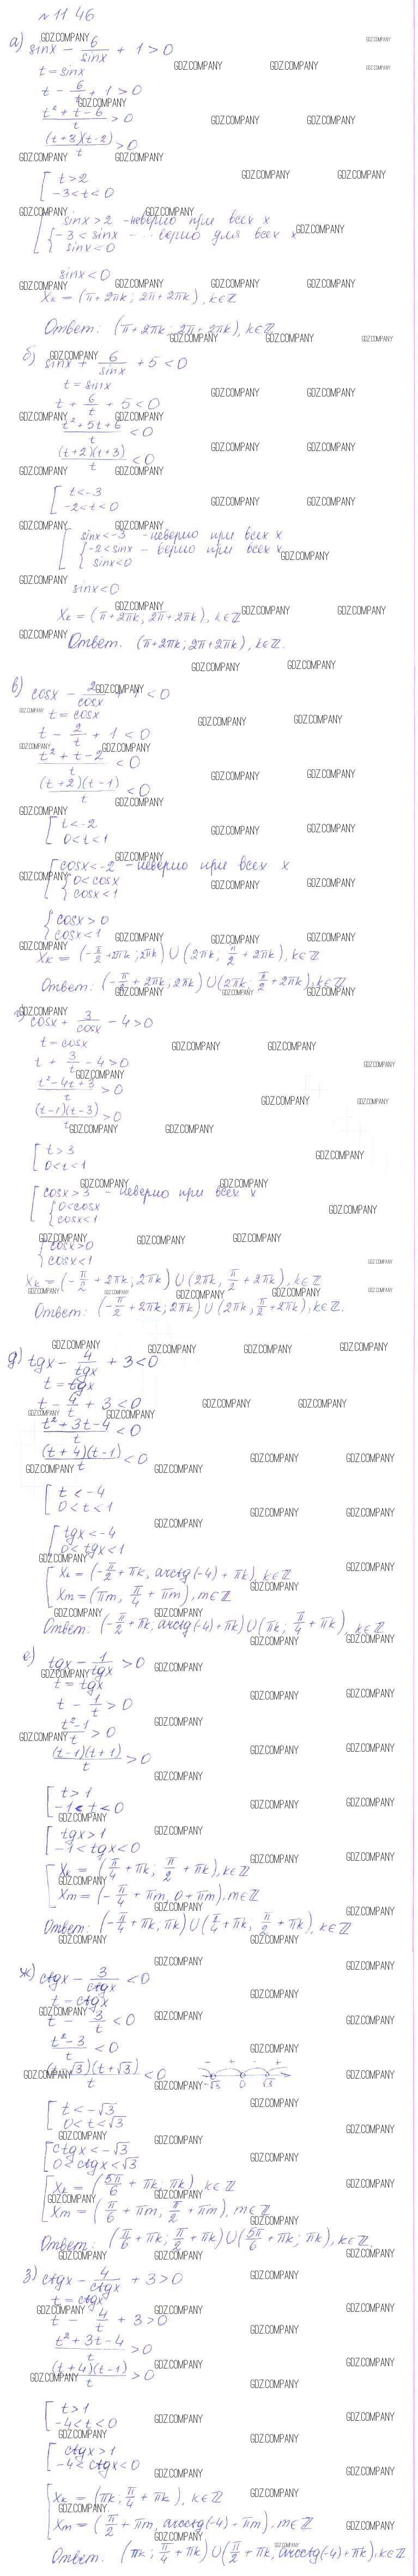 № 11 46
а) sinx - 6/sinx + 1 > 0
t = sinx
t - 6/t + 1 > 0
(t² + t - 6)/t > 0
(t+3)(t-2)/t > 0
[ t > 2
-3 < t < 0
[ sinx > 2 - неверно при всех x
{ -3 < sinx - верно для всех x
sinx < 0
sinx < 0
Xk = (π + 2πk; 2π + 2πk), k∈Z
Ответ: (π + 2πk; 2π + 2πk), k∈Z
б) sinx + 6/sinx + 5 < 0
t = sinx
t + 6/t + 5 < 0
(t² + 5t + 6)/t < 0
(t+2)(t+3)/t < 0
[ t < -3
-2 < t < 0
[ sinx < -3 - неверно при всех x
{ -2 < sinx - верно при всех x
sinx < 0
sinx < 0
Xk = (π + 2πk; 2π + 2πk), k∈Z
Ответ. (π + 2πk; 2π + 2πk), k∈Z.
в) cosx - 2/cosx + 1 < 0
t = cosx
t - 2/t + 1 < 0
(t² + t - 2)/t < 0
(t+2)(t-1)/t < 0
[ t < -2
0 < t < 1
[ cosx < -2 - неверно при всех x
{ 0 < cosx
cosx < 1
{ cosx > 0
cosx < 1
Xk = (-π/2 + 2πk; 2πk) ∪ (2πk, π/2 + 2πk), k∈Z
Ответ: (-π/2 + 2πk, 2πk) ∪ (2πk, π/2 + 2πk), k∈Z
г) cosx + 3/cosx - 4 > 0
t = cosx
t + 3/t - 4 > 0
(t² - 4t + 3)/t > 0
(t-1)(t-3)/t > 0
[ t > 3
0 < t < 1
[ cosx > 3 - неверно при всех x
{ 0 < cosx
cosx < 1
{ cosx > 0
cosx < 1
Xk = (-π/2 + 2πk; 2πk) ∪ (2πk, π/2 + 2πk), k∈Z
Ответ: (-π/2 + 2πk; 2πk) ∪ (2πk; π/2 + 2πk), k∈Z.
д) tgx - 4/tgx + 3 < 0
t = tgx
t - 4/t + 3 < 0
(t² + 3t - 4)/t < 0
(t+4)(t-1)/t < 0
[ t < -4
0 < t < 1
[ tgx < -4
0 < tgx < 1
[ Xk = (-π/2 + πk, arctg(-4) + πk), k∈Z
Xm = (πm, π/4 + πm), m∈Z
Ответ: (-π/2 + πk; arctg(-4) + πk) ∪ (πk; π/4 + πk), k∈Z
е) tgx - 1/tgx > 0
t = tgx
t - 1/t > 0
(t² - 1)/t > 0
(t-1)(t+1)/t > 0
[ t > 1
-1 < t < 0
[ tgx > 1
-1 < tgx < 0
[ Xk = (π/4 + πk; π/2 + πk), k∈Z
Xm = (-π/4 + πm, 0 + πm), m∈Z
Ответ: (-π/4 + πk, πk) ∪ (π/4 + πk, π/2 + πk), k∈Z
ж) ctgx - 3/ctgx < 0
t = ctgx
t - 3/t < 0
(t² - 3)/t < 0
(t-√3)(t+√3)/t < 0
- + - +
-√3 0 √3
[ t < -√3
0 < t < √3
[ ctgx < -√3
0 < ctgx < √3
[ Xk = (5π/6 + πk; πk), k∈Z
Xm = (π/6 + πm, π/2 + πm), m∈Z
Ответ: (π/6 + πk; π/2 + πk) ∪ (5π/6 + πk; πk), k∈Z.
з) ctgx - 4/ctgx + 3 > 0
t = ctgx
t - 4/t + 3 > 0
(t² + 3t - 4)/t > 0
(t+4)(t-1)/t > 0
[ t > 1
-4 < t < 0
[ ctgx > 1
-4 < ctgx < 0
[ Xk = (πk; π/4 + πk), k∈Z
Xm = (π/2 + πm, arcctg(-4) + πm), m∈Z
Ответ. (πk; π/4 + πk) ∪ (π/2 + πk, arcctg(-4) + πk), k∈Z
GDZ.COMPANY